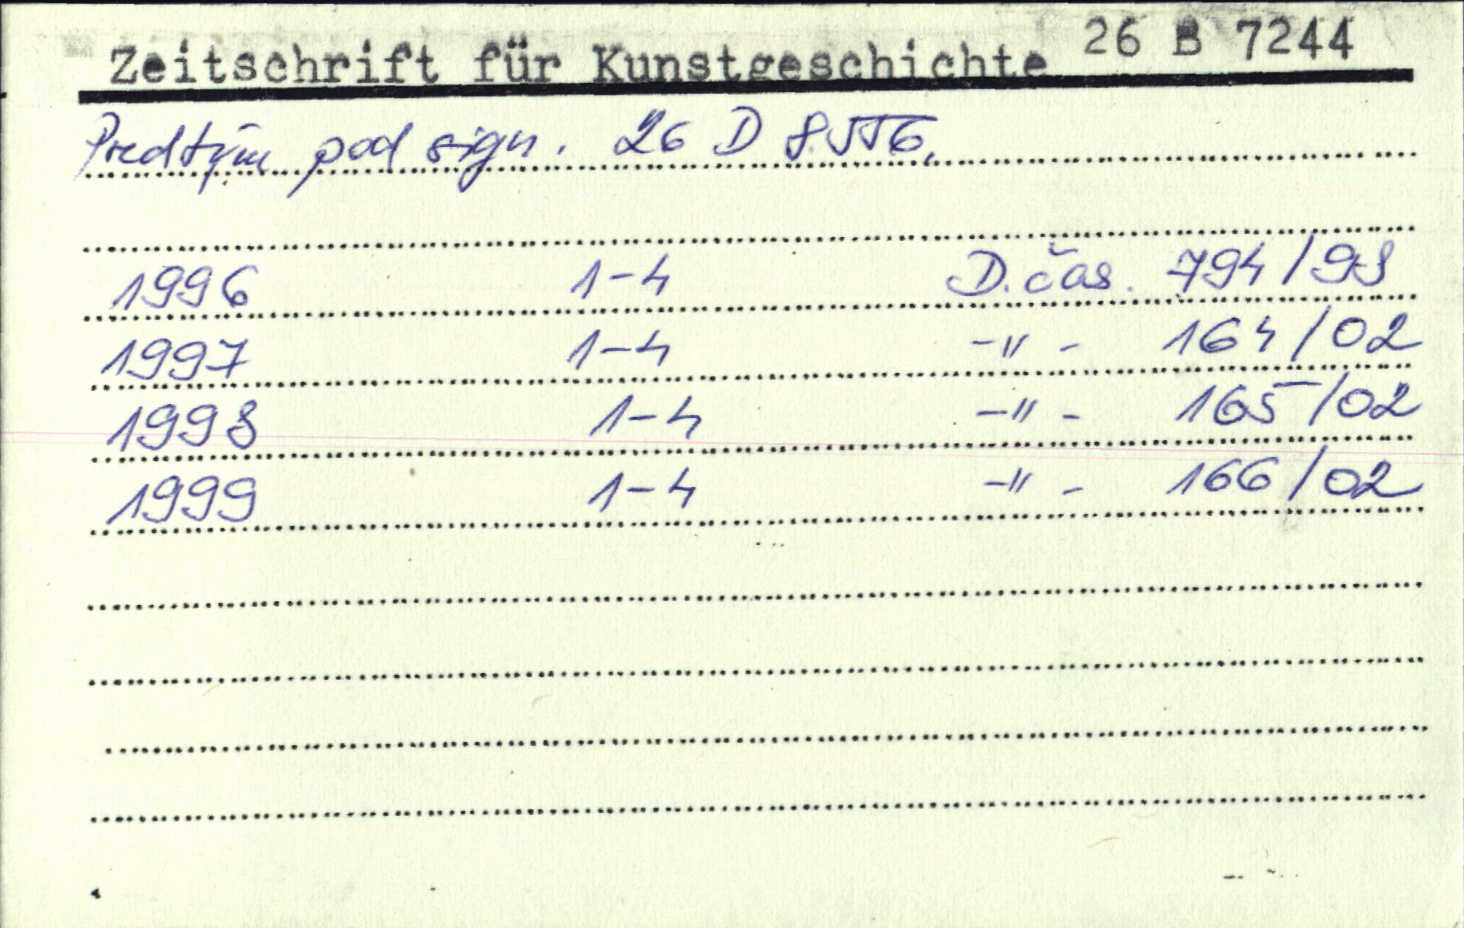 Zeitschrift für Kunstgeschichte 26 B 7244
Predtým pod sign. 26 D
1996 1-4 D. čas. 794/98
1997 1-4 -"- 164/02
1998 1-4 -"- 165/02
1999 1-4 -"- 166/02